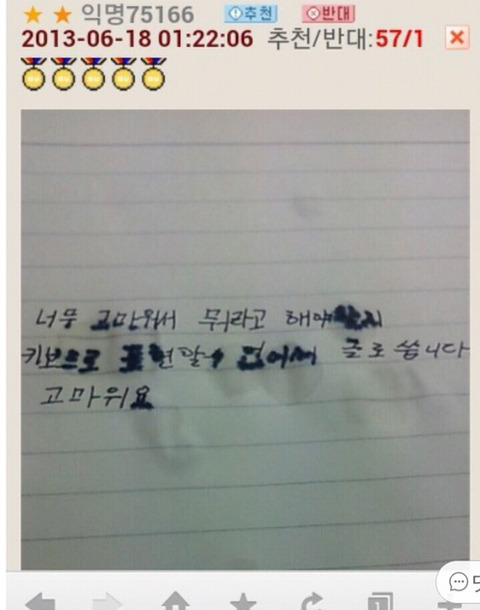 익명75166 추천 반대
2013-06-18 01:22:06 추천/반대:57/1
너무 고마워서 뭐라고 해야할지
키보드로 표현할수 없어서 글로 씁니다
고마워요
댓